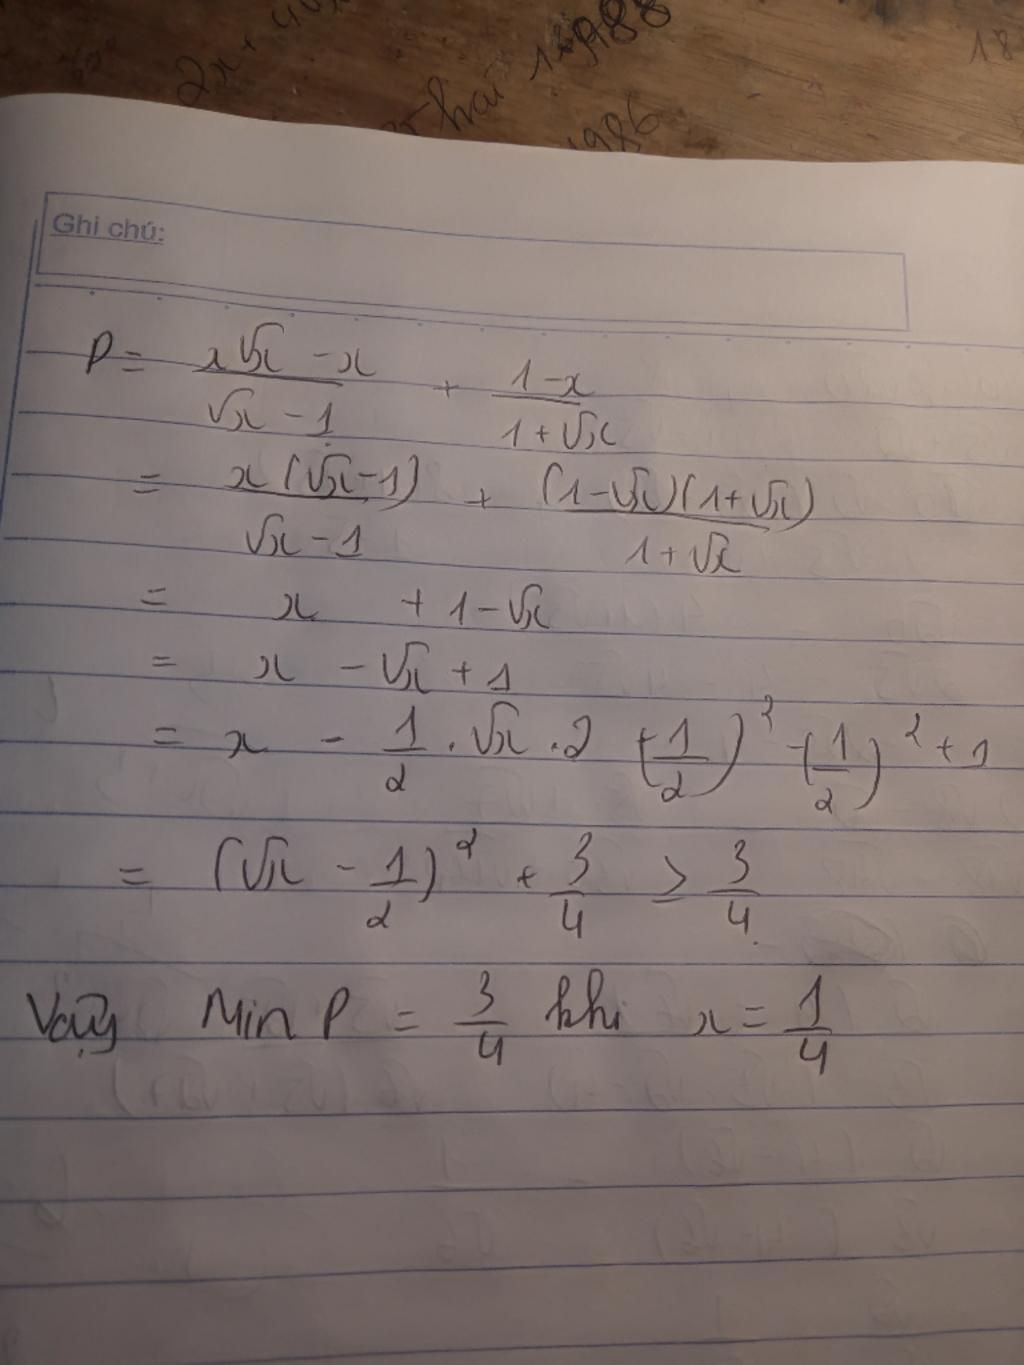 2x + 4
18
hai 1988
1986
Ghi chú:
P = \frac{x\sqrt{x} - x}{\sqrt{x} - 1} + \frac{1 - x}{1 + \sqrt{x}}
= \frac{x(\sqrt{x} - 1)}{\sqrt{x} - 1} + \frac{(1 - \sqrt{x})(1 + \sqrt{x})}{1 + \sqrt{x}}
= x + 1 - \sqrt{x}
= x - \sqrt{x} + 1
= x - \frac{1}{2} . \sqrt{x} . 2 + (\frac{1}{2})^2 - (\frac{1}{2})^2 + 1
= (\sqrt{x} - \frac{1}{2})^2 + \frac{3}{4} ≥ \frac{3}{4}
Vậy Min P = \frac{3}{4} khi x = \frac{1}{4}